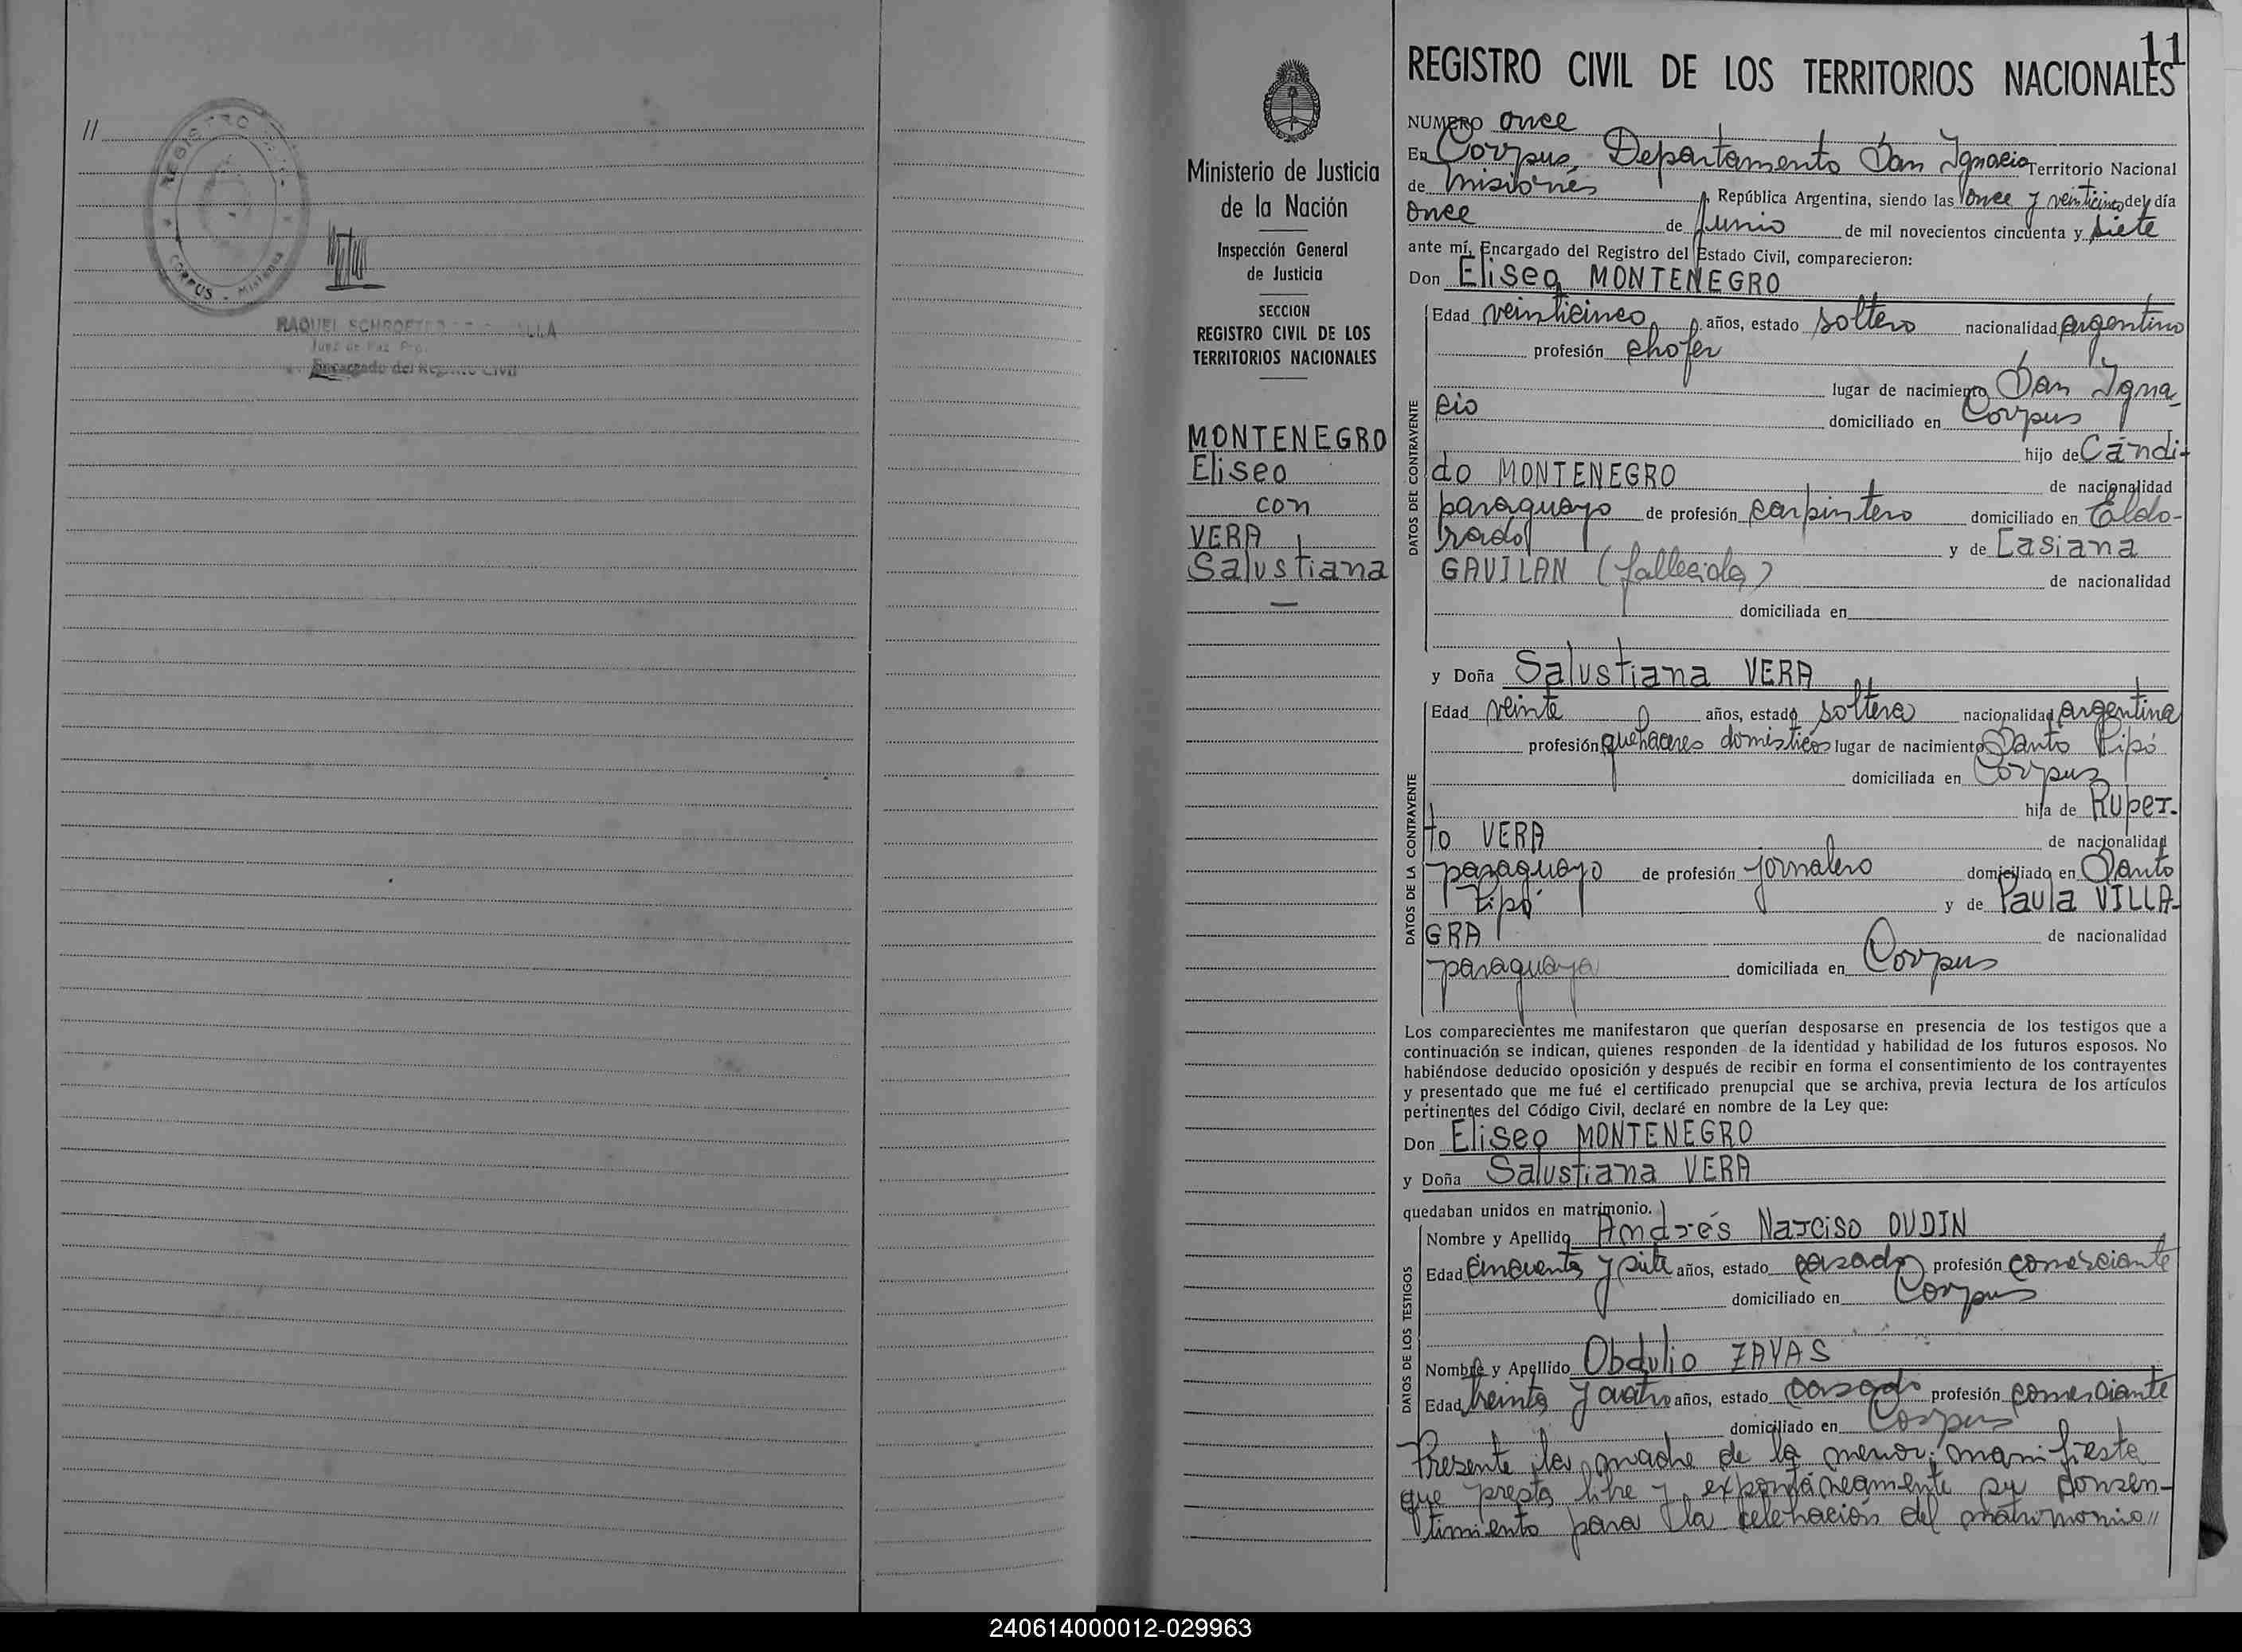 //
REGISTRO
CORPUS - Misiones
RAQUEL
Juez de Paz
Encargado del Registro Civil
11
REGISTRO CIVIL DE LOS TERRITORIOS NACIONALES
Ministerio de Justicia
de la Nación
Inspección General
de Justicia
SECCION
REGISTRO CIVIL DE LOS
TERRITORIOS NACIONALES
MONTENEGRO
Eliseo
con
VERA
Salustiana
NUMERO once
En Corpus, Departamento San Ignacio Territorio Nacional
de Misiones, República Argentina, siendo las once y veinticinco del día
once de Junio de mil novecientos cincuenta y siete
ante mí, Encargado del Registro del Estado Civil, comparecieron:
Don Eliseo MONTENEGRO
DATOS DEL CONTRAYENTE
Edad veinticinco años, estado soltero nacionalidad argentino
profesión chofer
lugar de nacimiento San Igna-
cio domiciliado en Corpus
hijo de Cándi-
do MONTENEGRO de nacionalidad
paraguayo de profesión carpintero domiciliado en Eldo-
rado y de Casiana
GAVILAN (fallecida) de nacionalidad
domiciliada en
y Doña Salustiana VERA
DATOS DE LA CONTRAYENTE
Edad veinte años, estado soltera nacionalidad argentina
profesión quehaceres domésticos lugar de nacimiento Santo Pipó
domiciliada en Corpus
hija de Ruper-
to VERA de nacionalidad
paraguayo de profesión jornalero domiciliado en Santo
Pipó y de Paula VILLA-
GRA de nacionalidad
paraguaya domiciliada en Corpus
Los comparecientes me manifestaron que querían desposarse en presencia de los testigos que a
continuación se indican, quienes responden de la identidad y habilidad de los futuros esposos. No
habiéndose deducido oposición y después de recibir en forma el consentimiento de los contrayentes
y presentado que me fué el certificado prenupcial que se archiva, previa lectura de los artículos
pertinentes del Código Civil, declaré en nombre de la Ley que:
Don Eliseo MONTENEGRO
y Doña Salustiana VERA
quedaban unidos en matrimonio.
DATOS DE LOS TESTIGOS
Nombre y Apellido Andrés Narciso OUDIN
Edad cincuenta y siete años, estado casado profesión comerciante
domiciliado en Corpus
Nombre y Apellido Obdulio ZAYAS
Edad treinta y cuatro años, estado casado profesión comerciante
domiciliado en Corpus
Presente la madre de la menor; manifiesta
que presta libre y expontáneamente su consen-
timiento para la celebración del matrimonio//
240614000012-029963